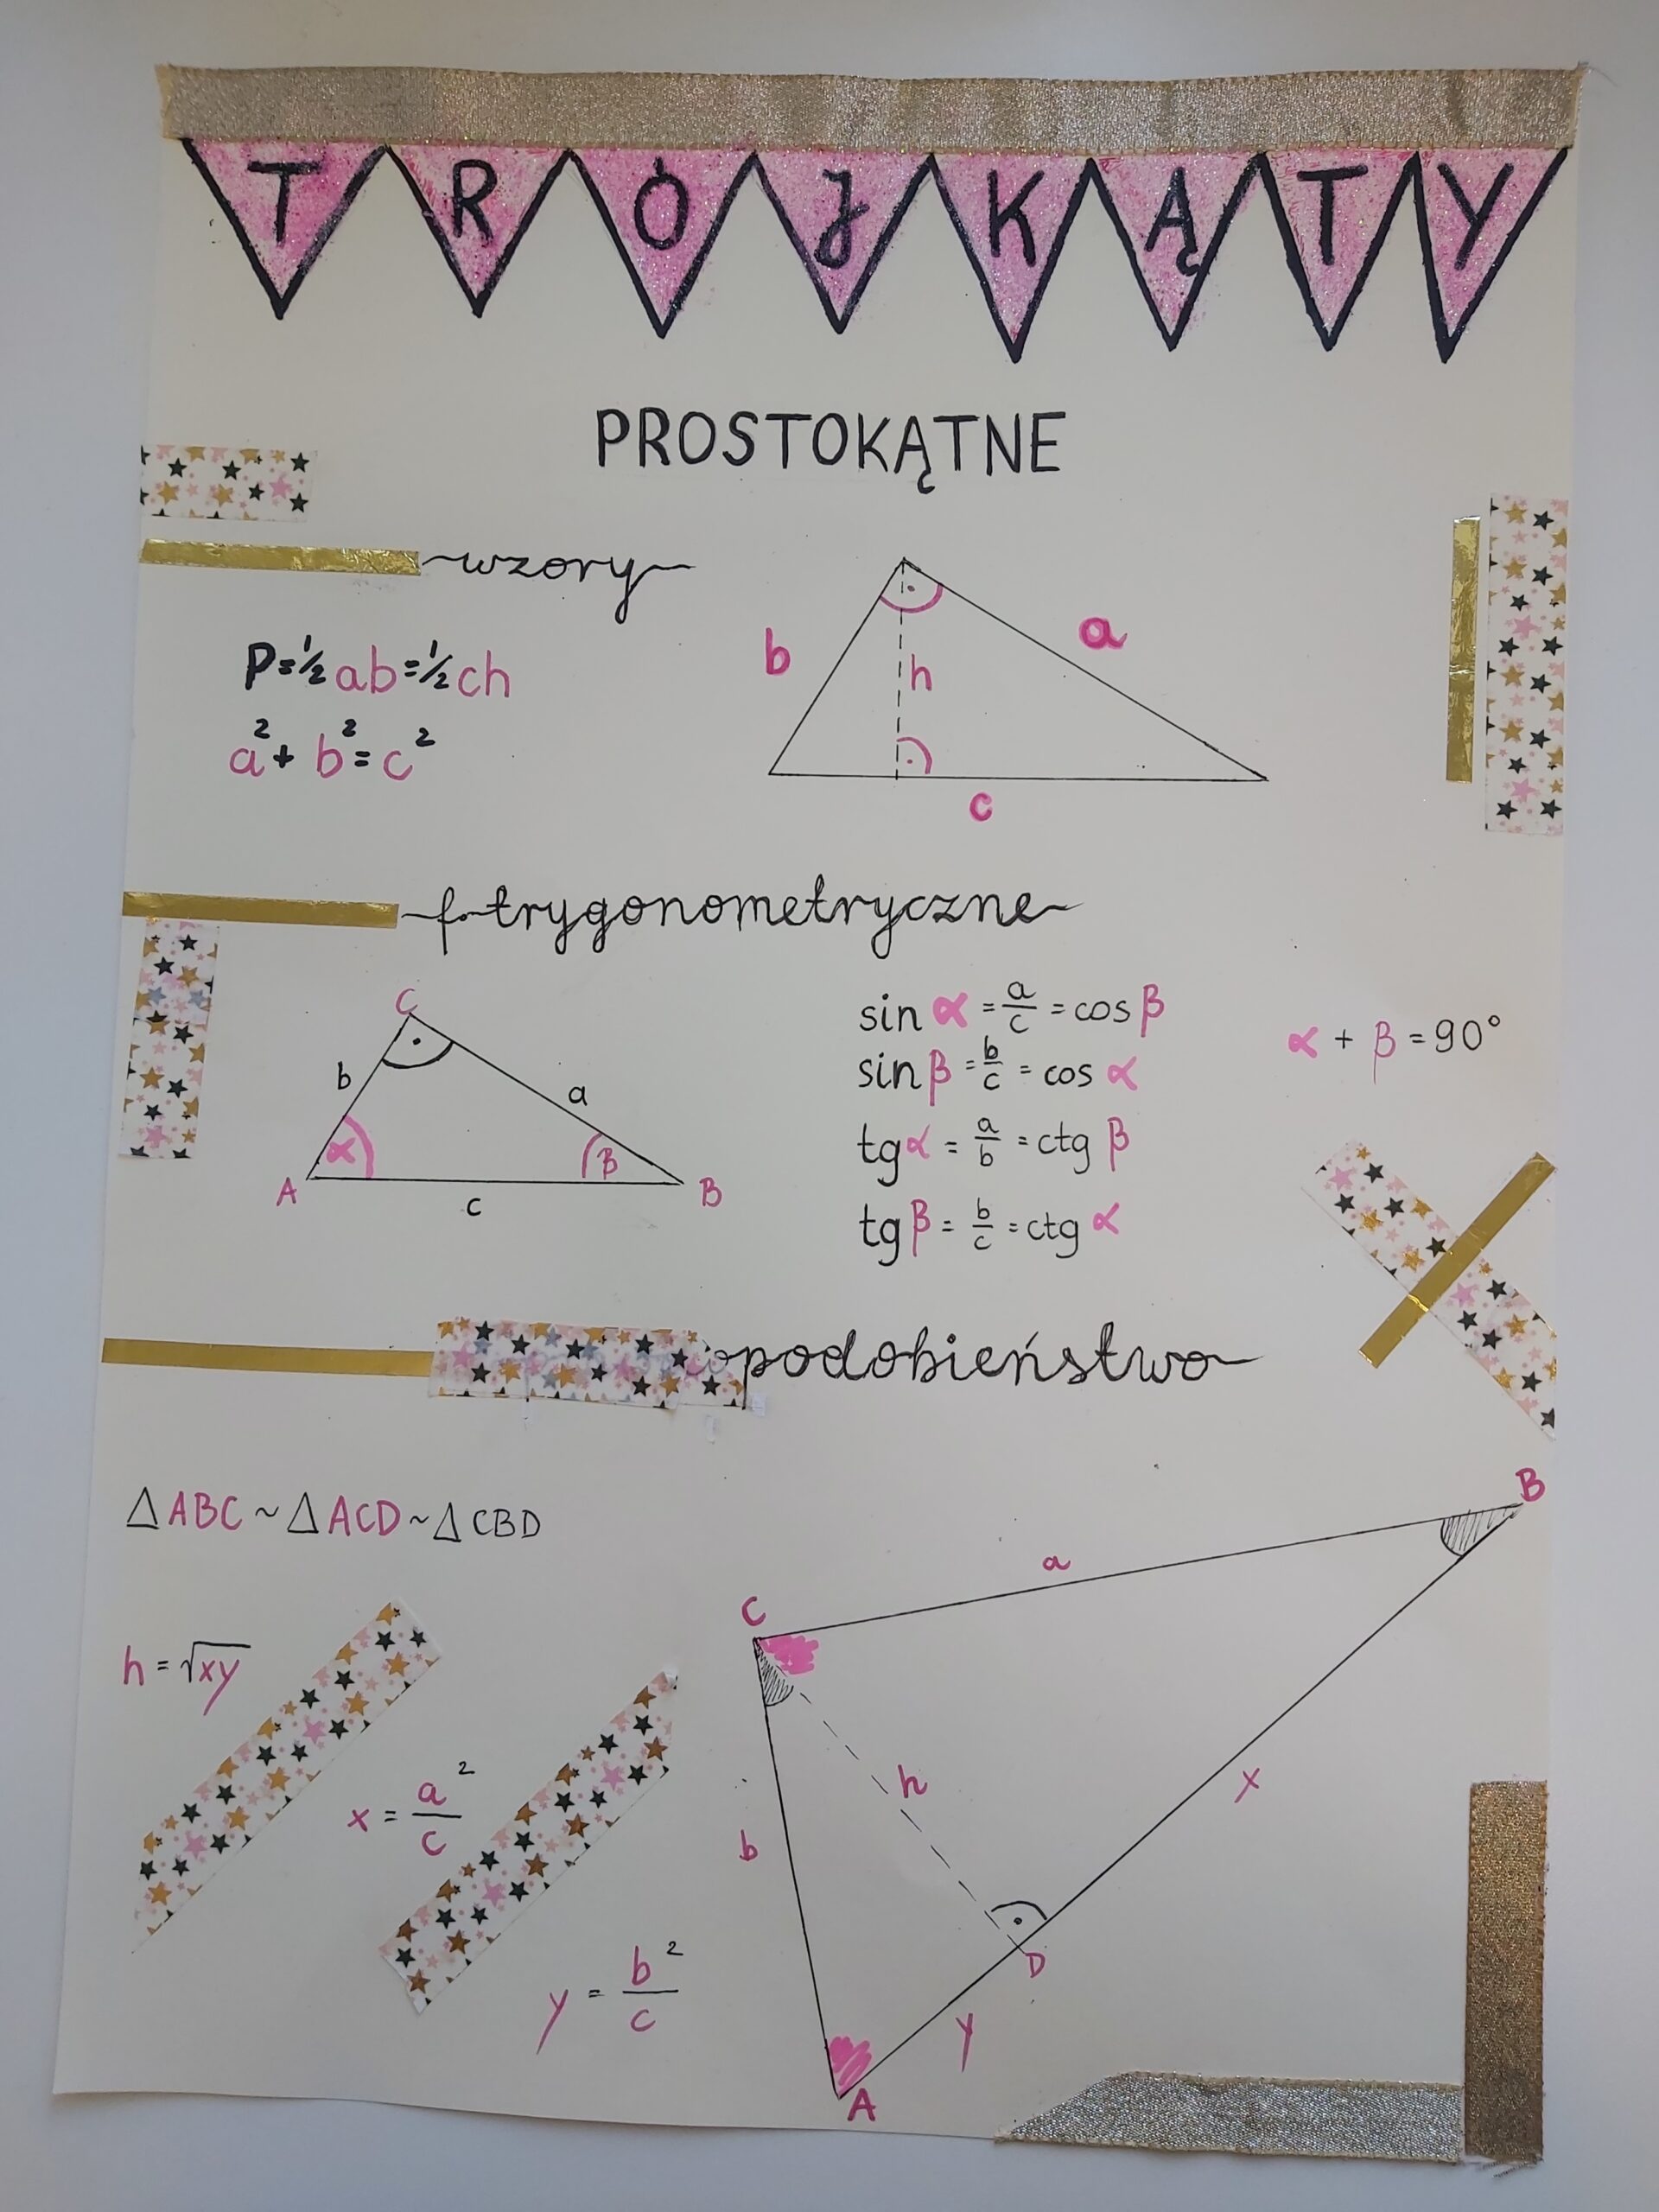 TRÓJKĄTY
PROSTOKĄTNE
wzory
P=1/2 ab=1/2 ch
a²+ b²= c²
b
a
h
c
f. trygonometryczne
C
b
a
α
β
A
B
c
sin α = a/c = cos β
sin β = b/c = cos α
tg α = a/b = ctg β
tg β = b/c = ctg α
α + β = 90°
podobieństwo
Δ ABC ~ Δ ACD ~ Δ CBD
h = √xy
x = a²/c
y = b²/c
B
a
C
h
x
b
D
y
A